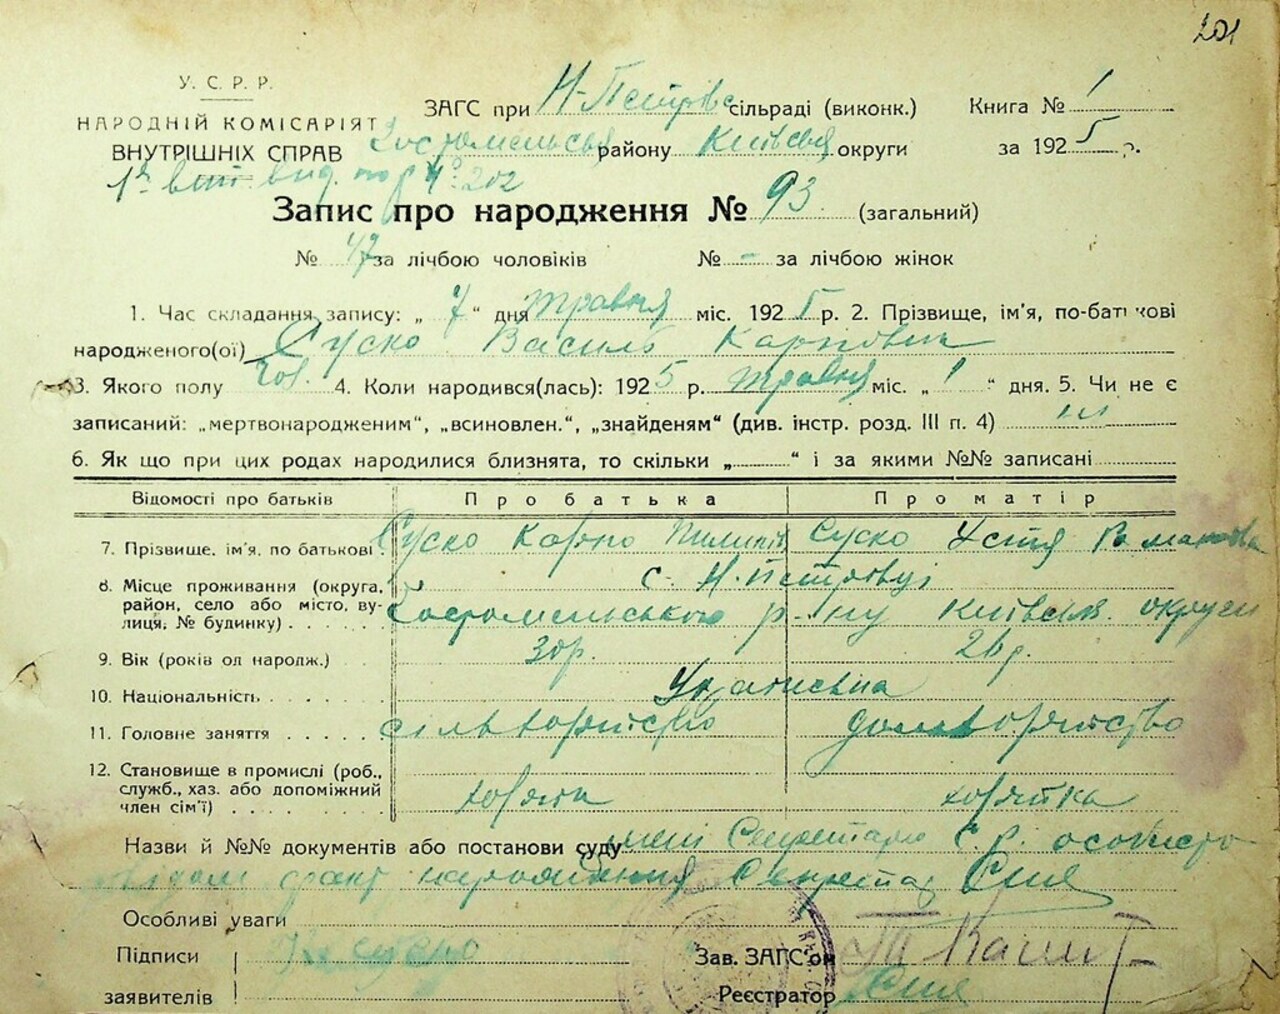 201
У. С. Р. Р.
НАРОДНІЙ КОМІСАРІЯТ
ВНУТРІШНІХ СПРАВ
ЗАГС при Н-Петрівс сільраді (виконк.) Книга № 1
Гостомельськ району Київськ округи за 1925 р.
202
Запис про народження № 93 (загальний)
№ 47 за лічбою чоловіків № - за лічбою жінок
1. Час складання запису: „ 7 “ дня травня міс. 1925 р. 2. Прізвище, ім'я, по-батькові
народженого(ої) Суско Василь Карпович
3. Якого полу чол. 4. Коли народився(лась): 1925 р. травня міс. „ 1 “ дня. 5. Чи не є
записаний: „мертвонародженим“, „всиновлен.“, „знайденям“ (див. інстр. розд. III п. 4) ні
6. Як що при цих родах народилися близнята, то скільки „ “ і за якими №№ записані
Відомості про батьків Про батька Про матір
7. Прізвище, ім'я, по батькові Суско Карпо Пилипів Суско Устя Романова
8. Місце проживання (округа, район, село або місто, вулиця, № будинку) с. Н. Петрівці
Гостомельського р-ну Київськ. округи
9. Вік (років од народж.) 30р. 26р.
10. Національність Українська
11. Головне заняття сільхозяйство домхозяйство
12. Становище в промислі (роб., служб., хаз. або допоміжний член сім'ї) хозяїн хозяйка
Назви й №№ документів або постанови суду мені Секретарю С. Р. особисто
відом факт народження Секретар
Особливі уваги
Підписи
заявителів
Зав. ЗАГС'ом
Реєстратор